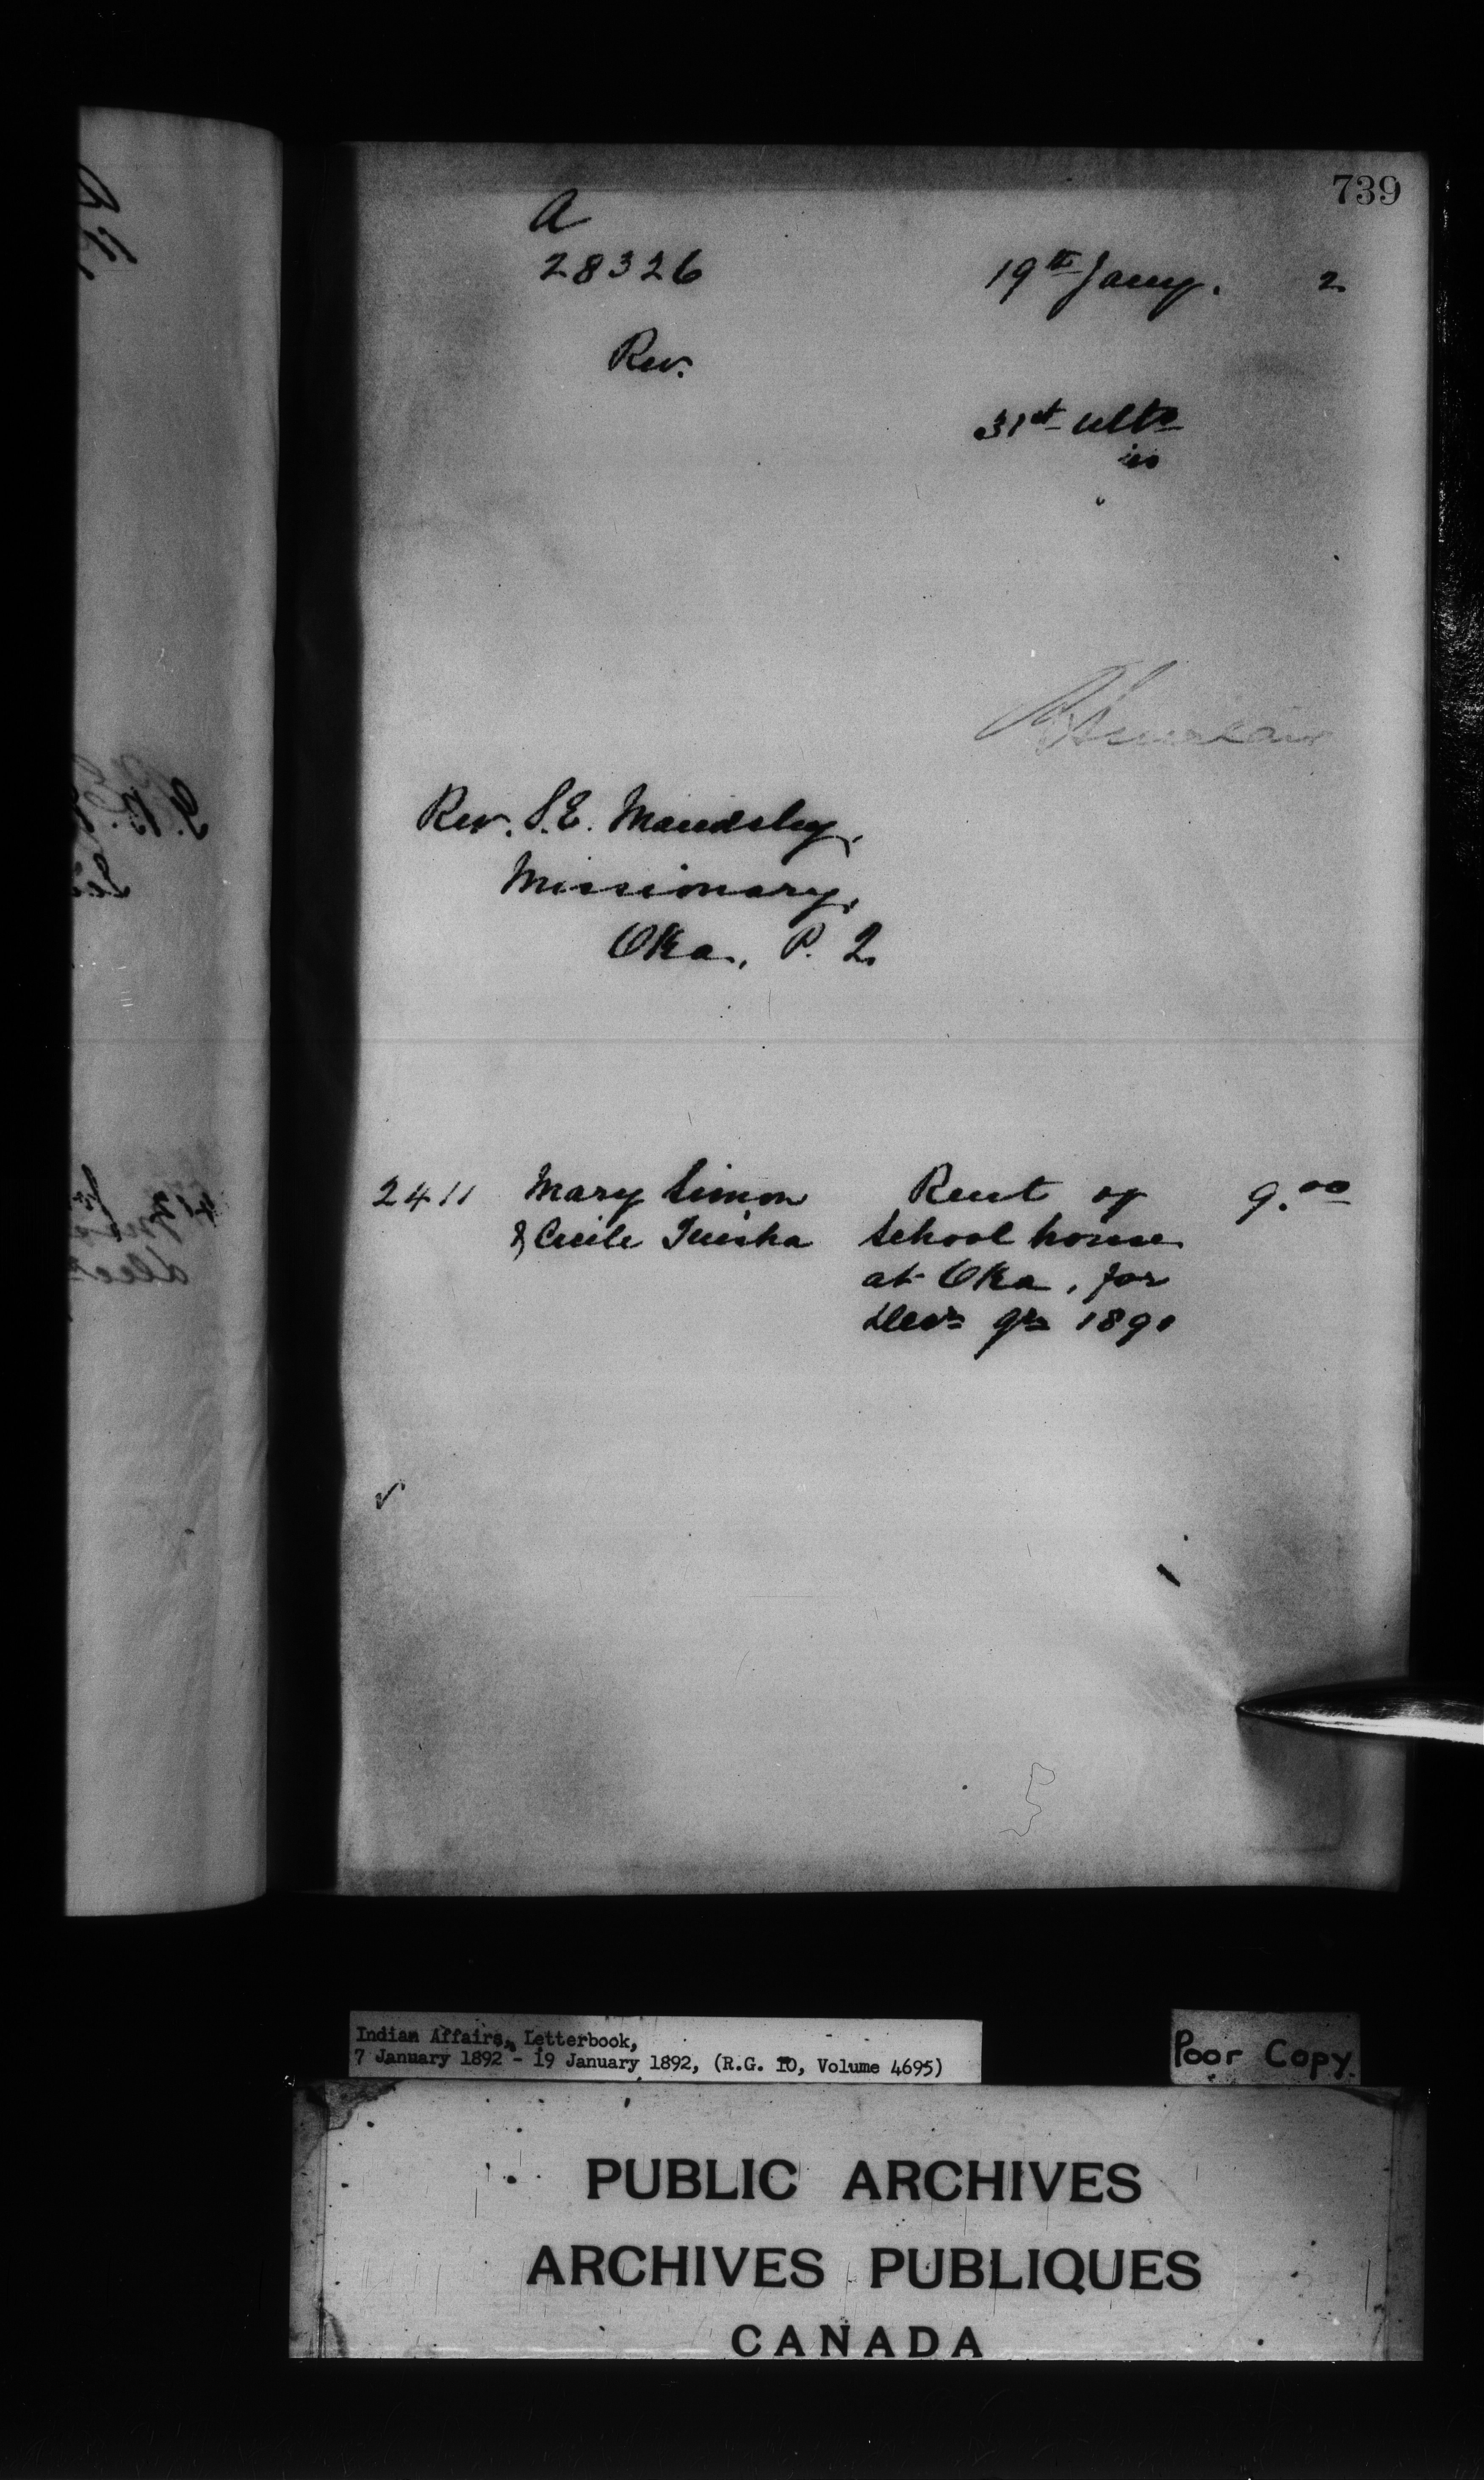 739
A
28326 19th Jany. 2
Rev.
31st ulto
is
Rev. S.E. Maudsley,
Missionary,
Oka, P. Q.
2411 Mary Simon Rent of 9.00
& Cecile school house
at Oka, for
Decr qr 1891
Indian Affairs, Letterbook,
7 January 1892 - 19 January 1892, (R.G. 10, Volume 4695)
Poor Copy.
PUBLIC ARCHIVES
ARCHIVES PUBLIQUES
CANADA